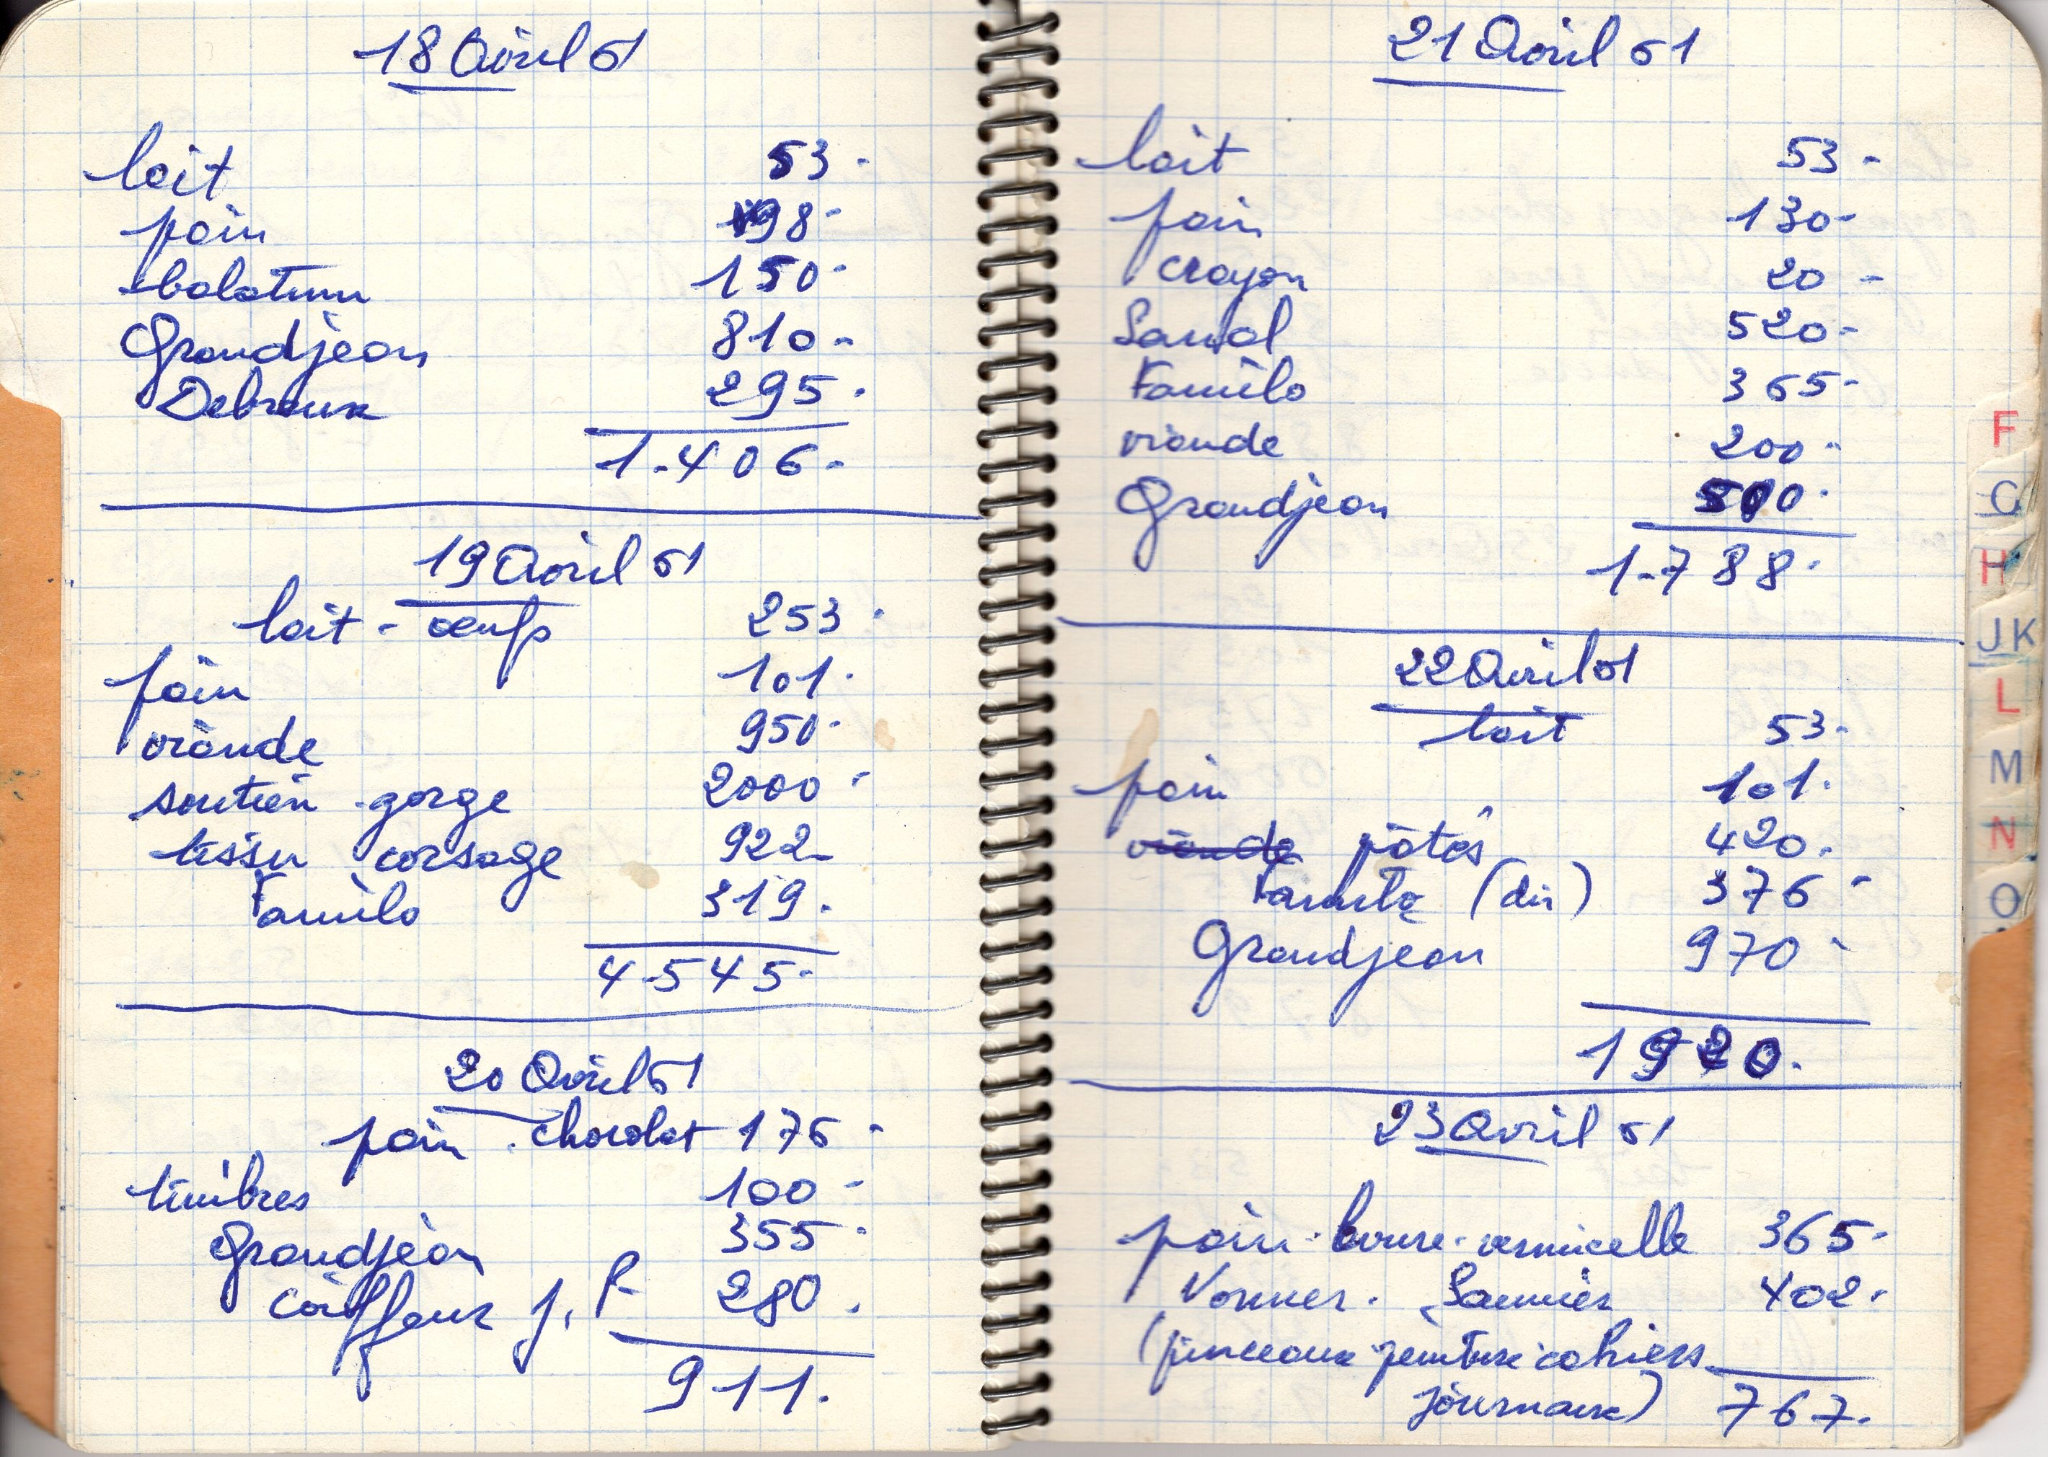 18 Avril 51
lait 53.-
pain 98.-
balatum 150.-
Grandjean 810.-
Debraux 295.
1.406.-
19 Avril 51
lait - oeufs 253.
pain 101.
viande 950.-
soutien-gorge 2000.-
tissu corsage 922-
Familo 319.
4.545.-
20 Avril 51
pain - chocolat 176 -
timbres 100 -
Grandjean 355.-
coiffeur J. P. 280.
911.
21 Avril 51
lait 53 -
pain 130-
crayon 20 -
520-
Familo 365-
viande 200-
Grandjean 500.
1.788.
22 Avril 51
lait 53.
pain 101.
viande pâtes 420.
(din) 376 -
Grandjean 970 -
1920.
23 Avril 51
pain - - vermicelle 365-
402.
(pinceaux peinture cahiers
journaux) 767.
F
G
H
JK
L
M
N
O